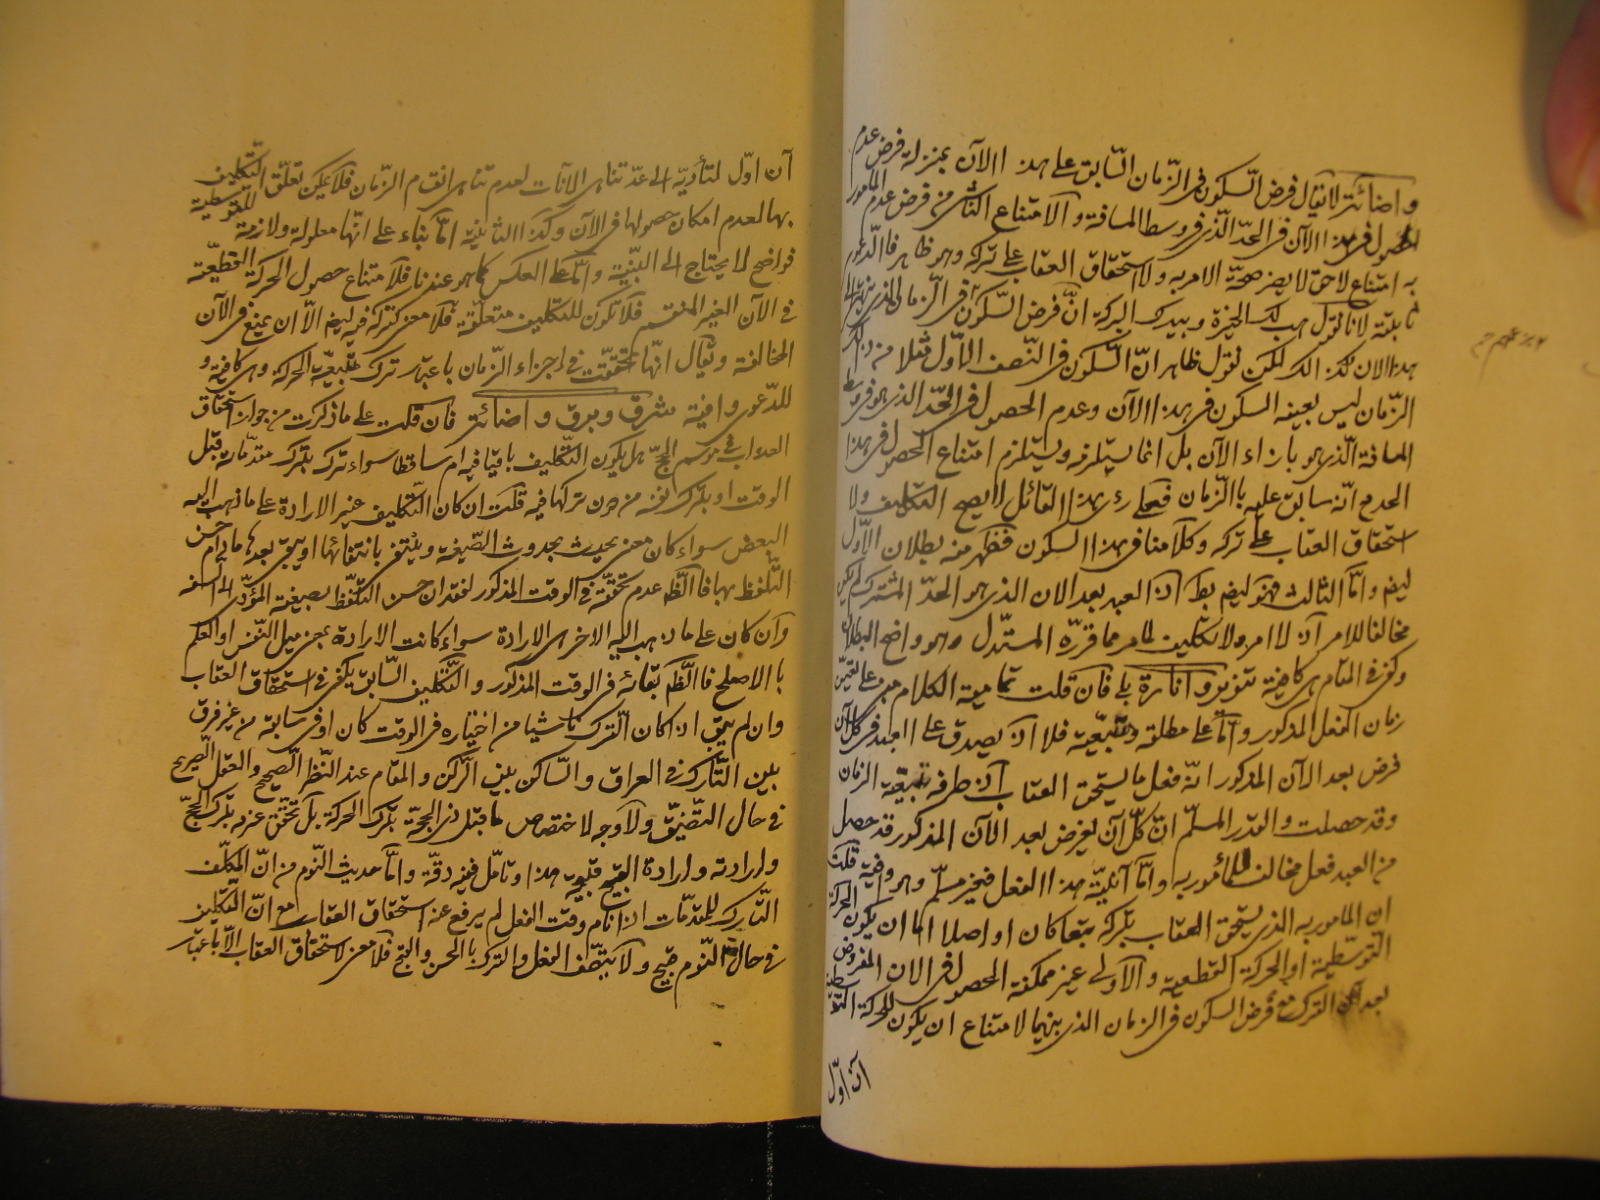 واضائة لا يقال فرض السكون فى الزمان السابق على هذا الآن بمنزلة فرض عدم
الحصول فى هذا الآن فى الحد الذى فى وسط المسافة والامتناع الناشى من فرض عدم المامور
به امتناع لاحق لا يضر صحة الامر به ولا استحقاق العقاب على تركه وهو ظاهر فالدعوى
ثابتة لانا نقول هب لك الخيرة وبيدك البركة ان فرض السكون فى الزمان الذى ينتهى الى
هذا الان كذلك لكن نقول ظاهر ان السكون فى النصف الاول مثلا من ذلك
الزمان ليس بعينه السكون فى هذا الآن وعدم الحصول فى الحد الذى هو فى وسط
المسافة الذى هو بازاء الآن بل انما يستلزمه ويستلزم امتناع الحصول فى هذا
الحد مع انه سابق عليه بالزمان فعلى رأى هذا القائل لا يصح التكليف ولا
استحقاق العقاب على تركه وكلامنا فى هذا السكون فظهر منه بطلان الأول
ايضا واما الثالث فهو ايضا بط اذ العبد بعد الان الذى هو الحد المشترك لم يكن
مخالفا للامر اذ لا امر ولا تكليف لما مر مما قرره المستدل وهو واضح البطلان
وكفى فى المقام هى كافية تنوير وانارة فان قلت تمامية الكلام مبنى على تعيين
زمان الفعل المذكور واما على مطلقه وطبيعته فلا اذ يصدق على العبد فى كل آن
فرض بعد الآن المذكور انه فعل ما يستحق العقاب اذ ظرفه طبيعة الزمان
وقد حصلت والقدر المسلم ان كل آن يفرض بعد الآن المذكور قد حصل
من العبد فعل مخالف للمأمور به واما آنية هذا الفعل فغير مسلم وهو وفيه قلت
ان المامور به الذى يستحق العقاب بتركه تبعا كان او اصلا اما ان يكون الحركة
التوسطية او الحركة القطعية والاولى غير ممكنة الحصول فى الان المفروض
بعد الترك مع فرض السكون فى الزمان الذى بينهما لامتناع ان يكون للحركة التوسطية
آن اول
آن اول لتأديه الى عد تناهى الآنات لعدم تناهى انقسام الزمان فلا يمكن تعلق التكليف
بها لعدم امكان حصولها فى الآن وكذا الثانية اما بناء على انها معلولة ولازمة للتوسطية
فواضح لا يحتاج الى البينة واما على العكس كما هو عندنا فلامتناع حصول الحركة القطعية
فى الآن الغير المنقسم فلا تكون للتكليف متعلقة فلا معنى لتركه فيه ايضا الا ان يمنع فى الآن
المخالفة ويقال انها تحققت فى اجزاء الزمان باعتبار ترك طبيعة الحركة وهى كافية و
للدعوى وافية مشرق وبرق واضائة فان قلت على ما ذكرت من جواز استحقاق
العذاب فى موسم الحج هل يكون التكليف باقيا فيه ام ساقطا سواء ترك بترك مقدماته قبل
الوقت او بترك نفسه من دون تركها فيه قلت ان كان التكليف غير الارادة على ما ذهب اليه
البعض سواء كان معنى يحدث بحدوث الصيغة وينتفى بانتفائها او يبقى بعدها ما دام حسن
التلفظ بها فالظ عدم تحققه فى الوقت المذكور لفقدان حسن التلفظ بصيغته المؤدى الى السفه
وان كان على ما ذهب اليه الاخرى الارادة سواء كانت الارادة بمعنى ميل النفس او العلم
بالاصلح فالظ بقائه فى الوقت المذكور والتكليف السابق يكفى فى استحقاق العقاب
وان لم يبق اذ كان الترك ناشيا من اختياره فى الوقت كان او فى سابقه من غير فرق
بين التارك فى العراق والساكن بين الركن والمقام عند النظر الصحيح والعقل الصريح
فى حال التضيق ولا وجه لاختصاص ما قبل ذى الحجة بترك الحركة بل تحقق عزمه بترك الحج
وارادته وارادة القبيح قبيحة هذا وتأمل ففيه دقة واما حديث النوم من ان المكلف
التارك للمقدمات اذا نام وقت الفعل لم يرفع عنه استحقاق العقاب مع ان التكليف
فى حال النوم قبيح ولا يتصف الفعل والترك بالحسن والقبح فلا معنى لاستحقاق العقاب الا باعتبار